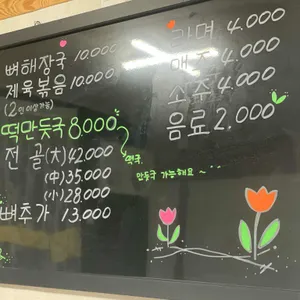 뼈해장국 10.000
제육볶음 10.000
(2인이상가능)
떡만둣국 8.000
전 골 (大) 42.000
(中) 35.000
(小) 28.000
뼈추가 13.000
라면 4.000
맥주 4.000
소주 4.000
음료 2.000
떡국,
만둣국 가능해요~